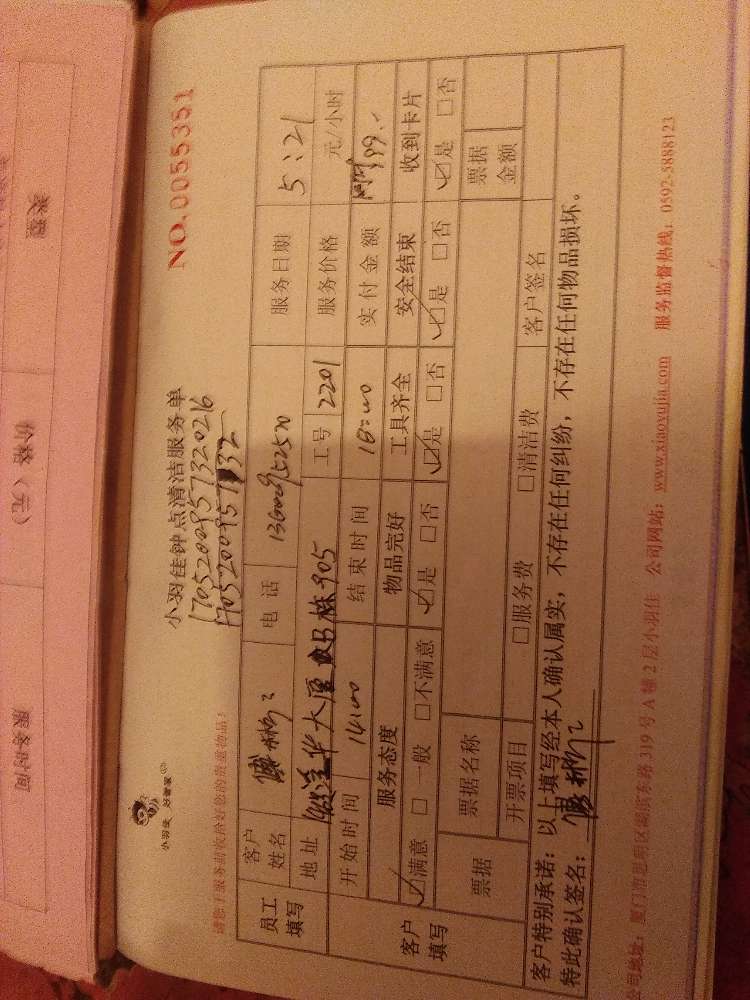 类型
价格（元）
服务时间
小羽佳 好管家
NO.0055351
小羽佳钟点清洁服务单
1705200957320216
请您于服务前收拾好您的贵重物品！
员工填写 客户姓名 电话 服务日期 5:21
地址 大厦 905 工号 2201 服务价格 元/小时
开始时间 14:00 结束时间 18:00 实付金额 99.-
客户填写 服务态度 物品完好 工具齐全 安全结束 收到卡片
☑满意 □一般 □不满意 ☑是 □否 ☑是 □否 ☑是 □否 ☑是 □否
票据 票据名称 票据金额
开票项目 □服务费 □清洁费 客户签名
客户特别承诺：以上填写经本人确认属实，不存在任何纠纷，不存在任何物品损坏。
特此确认签名：
公司地址：厦门市思明区湖滨东路319号A幢2层小羽佳 公司网站：www.xiaoyujia.com 服务监督热线：0592-5888123